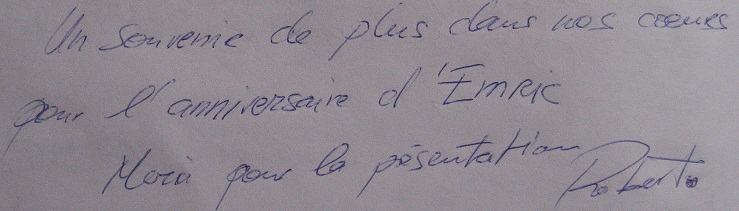 Un souvenir de plus dans nos coeurs
pour l'anniversaire d'EMRIC
Merci pour la présentation Roberto